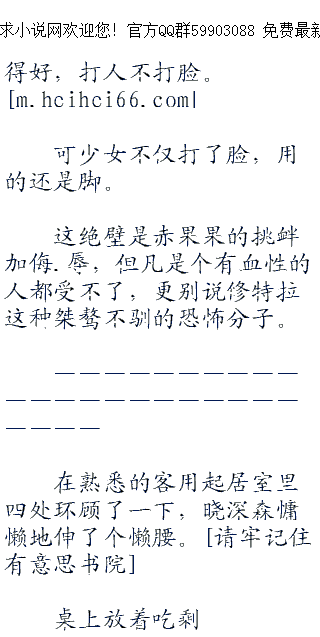 求小说网欢迎您! 官方QQ群59903088 免费最新
得好，打人不打脸。
[m.hcihci66.com|
可少女不仅打了脸，用
的还是脚。
这绝壁是赤果果的挑衅
加侮.辱，但凡是个有血性的
人都受不了，更别说修特拉
这种桀骜不驯的恐怖分子。
——————————
————————————
————
在熟悉的客用起居室里
四处环顾了一下，晓深森慵
懒地伸了个懒腰。[请牢记住
有意思书院]
桌上放着吃剩